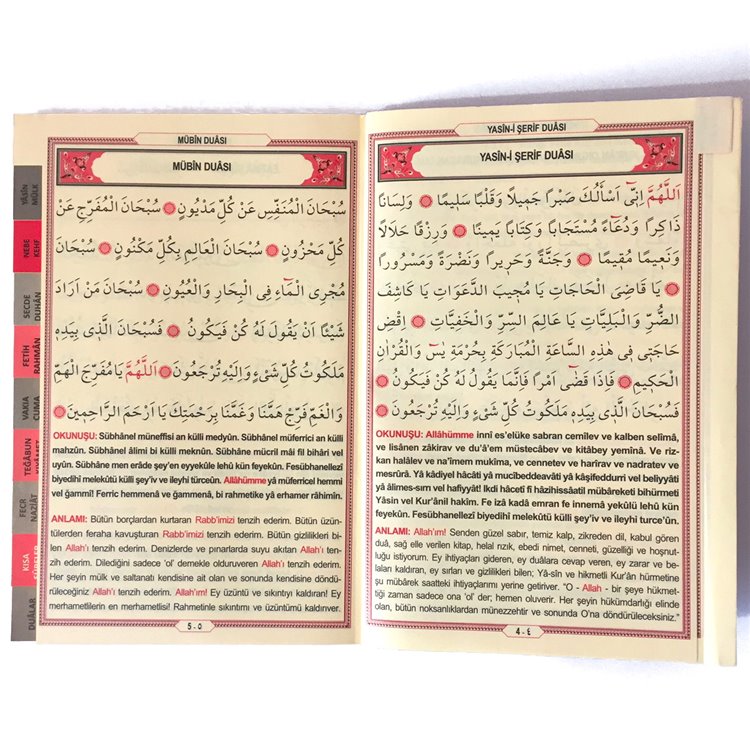 YASİN-İ ŞERİF DUÂSI
YASİN-İ ŞERİF DUÂSI
اَللّٰهُمَّ اِنّٖٓى اَسْأَلُكَ صَبْرًا جَمٖيلًا وَقَلْبًا سَلٖيمًا ۞ وَلِسَانًا
ذَاكِرًا وَدُعَٓاءً مُسْتَجَابًا وَكِتَابًا يَمٖينًا ۞ وَرِزْقًا حَلَالًا
وَنَعٖيمًا مُقٖيمًا ۞ وَجَنَّةً وَحَرٖيرًا وَنَضْرَةً وَمَسْرُورًا
۞ يَا قَاضِىَ الْحَاجَاتِ يَا مُجٖيبَ الدَّعَوَاتِ يَا كَاشِفَ
الضُّرِّ وَالْبَلِيَّاتِ يَا عَالِمَ السِّرِّ وَالْخَفِيَّاتِ ۞ اِقْضِ
حَاجَتٖى فٖى هٰذِهِ السَّاعَةِ الْمُبَارَكَةِ بِحُرْمَةِ يٰسٓ وَالْقُرْاٰنِ
الْحَكٖيمِ ۞ فَاِذَا قَضٰٓى اَمْرًا فَاِنَّمَا يَقُولُ لَهُ كُنْ فَيَكُونُ ۞
فَسُبْحَانَ الَّذٖى بِيَدِهٖ مَلَكُوتُ كُلِّ شَىْءٍ وَاِلَيْهِ تُرْجَعُونَ ۞
OKUNUŞU: Allâhümme innî es'elüke sabran cemîlev ve kalben selîmâ,
ve lisânen zâkirav ve du'â'em müstecâbev ve kitâbey yemînâ. Ve riz-
kan halâlev ve na'îmem mukîma, ve cennetev ve harîrav ve nadratev ve
mesrûrâ. Yâ kâdiyel hâcâti yâ mucîbeddeavâti yâ kâşifeddurri vel beliyyâti
yâ âlimes-sırri vel hafiyyât! Ikdi hâcetî fî hâzihissaâtil mübâreketi bihürmeti
Yâsin vel Kur'ânil hakîm. Fe izâ kadâ emran fe innemâ yekûlü lehû kün
feyekûn. Fesübhanellezî biyedihî melekûtü külli şey'iv ve ileyhi turce'ûn.
ANLAMI: Allah'ım! Senden güzel sabır, temiz kalp, zikreden dil, kabul gören
duâ, sağ elle verilen kitap, helal rızık, ebedi nimet, cenneti, güzelliği ve hoşnut-
luğu istiyorum. Ey ihtiyaçları gideren, ey duâlara cevap veren, ey zarar ve be-
laları kaldıran, ey sırları ve gizlilikleri bilen; Yâ-sîn ve hikmetli Kur'ân hürmetine
şu mübârek saatteki ihtiyaçlarımı yerine getiriver. “O - Allah - bir şeye hükmet-
tiği zaman sadece ona 'ol' der; hemen oluverir. Her şeyin hükümdarlığı elinde
olan, bütün noksanlıklardan münezzehtir ve sonunda O'na döndürüleceksiniz.”
4 - ٤
MÜBİN DUÂSI
MÜBİN DUÂSI
سُبْحَانَ الْمُنَفِّسِ عَنْ كُلِّ مَدْيُونٍ ۞ سُبْحَانَ الْمُفَرِّجِ عَنْ
كُلِّ مَحْزُونٍ ۞ سُبْحَانَ الْعَالِمِ بِكُلِّ مَكْنُونٍ ۞ سُبْحَانَ
مُجْرِى الْمَٓاءِ فِى الْبِحَارِ وَالْعُيُونِ ۞ سُبْحَانَ مَنْ اَرَادَ
شَيْئًا اَنْ يَقُولَ لَهُ كُنْ فَيَكُونُ ۞ فَسُبْحَانَ الَّذٖى بِيَدِهٖ
مَلَكُوتُ كُلِّ شَىْءٍ وَاِلَيْهِ تُرْجَعُونَ ۞ اَللّٰهُمَّ يَا مُفَرِّجَ الْهَمِّ
وَالْغَمِّ فَرِّجْ هَمَّنَا وَغَمَّنَا بِرَحْمَتِكَ يَٓا اَرْحَمَ الرَّاحِمٖينَ ۞
OKUNUŞU: Sübhânel müneffisi an külli medyûn. Sübhânel müferrici an külli
mahzûn. Sübhânel âlimi bi külli meknûn. Sübhâne mücril mâi fil bihâri vel
uyûn. Sübhâne men erâde şey'en eyyekûle lehû kün feyekûn. Fesübhanellezî
biyedihî melekûtü külli şey'iv ve ileyhi türceûn. Allâhümme yâ müferricel hemmi
vel ğammî! Ferric hemmenâ ve ğammenâ, bi rahmetike yâ erhamer râhimîn.
ANLAMI: Bütün borçlardan kurtaran Rabb'imizi tenzih ederim. Bütün üzün-
tülerden feraha kavuşturan Rabb'imizi tenzih ederim. Bütün gizlilikleri bi-
len Allah'ı tenzih ederim. Denizlerde ve pınarlarda suyu akıtan Allah'ı ten-
zih ederim. Dilediğini sadece 'ol' demekle olduruveren Allah'ı tenzih ederim.
Her şeyin mülk ve saltanatı kendisine ait olan ve sonunda kendisine döndü-
rüleceğiniz Allah'ı tenzih ederim. Allah'ım! Ey üzüntü ve sıkıntıyı kaldıran! Ey
merhametlilerin en merhametlisi! Rahmetinle sıkıntımı ve üzüntümü kaldırıver.
5 - ٥
YÂSÎN
MÜLK
NEBE
KEHF
SECDE
DUHÂN
FETİH
RAHMÂN
VAKIA
CUMA
TEĞÂBUN
FECR
NAZİÂT
KISA
DUÂLAR